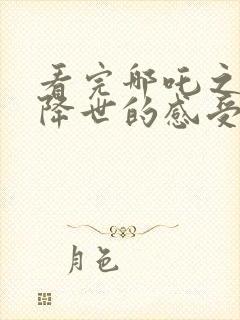 看完哪吒之
降世的感受
月色